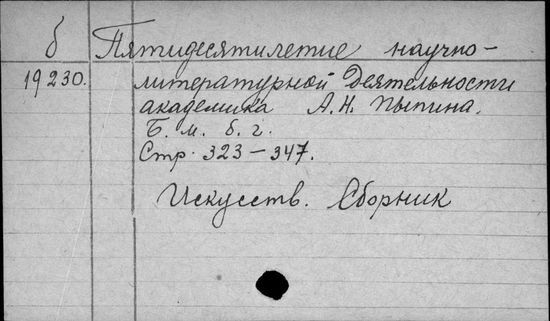 б Пятидесятилетие научно-
19230. литературной деятельности
академика А. Н. Пыпина.
Б. м. б. г.
Стр. 323-347.
Искусств. Сборник